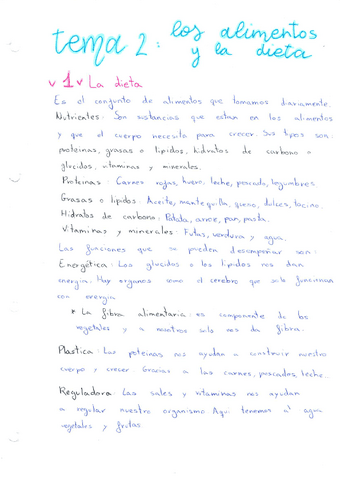 tema 2: los alimentos
y la dieta
1 La dieta
Es el conjunto de alimentos que tomamos diariamente.
Nutrientes: Son sustancias que estan en los alimentos
y que el cuerpo necesita para crecer. Sus tipos son:
proteinas, grasas o lipidos, hidratos de carbono o
glucidos, vitaminas y minerales.
Proteinas: Carnes rojas, huevo, leche, pescado, legumbres.
Grasas o lipidos: Aceite, mantequilla, queso, dulces, tocino.
Hidratos de carbono: Patata, arroz, pan, pasta.
Vitaminas y minerales: Futas, verdura y agua.
Las funciones que se pueden desempeñar son:
Energética: Los glucidos o los lipidos nos dan
energia. Hay organos como el cerebro que solo funcionan
con energia.
* La fibra alimentaria: es componente de los
vegetales y a nuestros solo nos da fibra.
Plastica: Las poteinas nos ayudan a construir nuestro
cuerpo y crecer. Gracias a las carnes, pescados, leche...
Reguladora: Las sales y vitaminas nos ayudan
a regular nuestro organismo. Aqui tenemos agua
vegetales y frutas